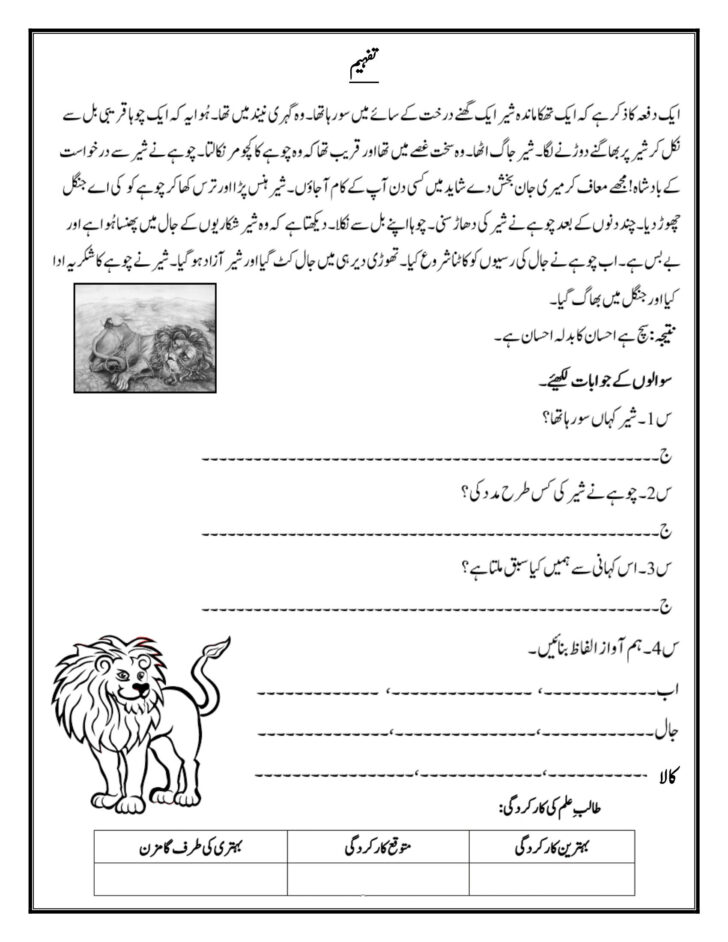 تفہیم
ایک دفعہ کا ذکر ہے کہ ایک تھکا ماندہ شیر ایک گھنے درخت کے سائے میں سو رہا تھا۔ وہ گہری نیند میں تھا۔ ہُوا یہ کہ ایک چوہا قریبی بل سے
نکل کر شیر پر بھاگنے دوڑنے لگا۔ شیر جاگ اٹھا۔ وہ سخت غصے میں تھا اور قریب تھا کہ وہ چوہے کا کچومر نکالتا۔ چوہے نے شیر سے درخواست
کے بادشاہ! مجھے معاف کر میری جان بخش دے شاید میں کسی دن آپ کے کام آ جاؤں۔ شیر ہنس پڑا اور ترس کھا کر چوہے کو کی اے جنگل
چھوڑ دیا۔ چند دنوں کے بعد چوہے نے شیر کی دھاڑ سنی۔ چوہا اپنے بل سے نکلا۔ دیکھتا ہے کہ وہ شیر شکاریوں کے جال میں پھنسا ہُوا ہے اور
بے بس ہے۔ اب چوہے نے جال کی رسیوں کو کاٹنا شروع کیا۔ تھوڑی دیر ہی میں جال کٹ گیا اور شیر آزاد ہو گیا۔ شیر نے چوہے کا شکریہ ادا
کیا اور جنگل میں بھاگ گیا۔
نتیجہ: سچ ہے احسان کا بدلہ احسان ہے۔
سوالوں کے جوابات لکھئے۔
س1۔ شیر کہاں سو رہا تھا؟
ج۔----------------------------------------------------
س2۔ چوہے نے شیر کی کس طرح مدد کی؟
ج۔----------------------------------------------------
س3۔ اس کہانی سے ہمیں کیا سبق ملتا ہے؟
ج۔----------------------------------------------------
س4۔ ہم آواز الفاظ بنائیں۔
اب-------------، ----------------، --------------
جال-------------،----------------،---------------
کالا ------------،--------------،------------------
طالبِ علم کی کارکردگی:
بہترین کارکردگی متوقع کارکردگی بہتری کی طرف گامزن